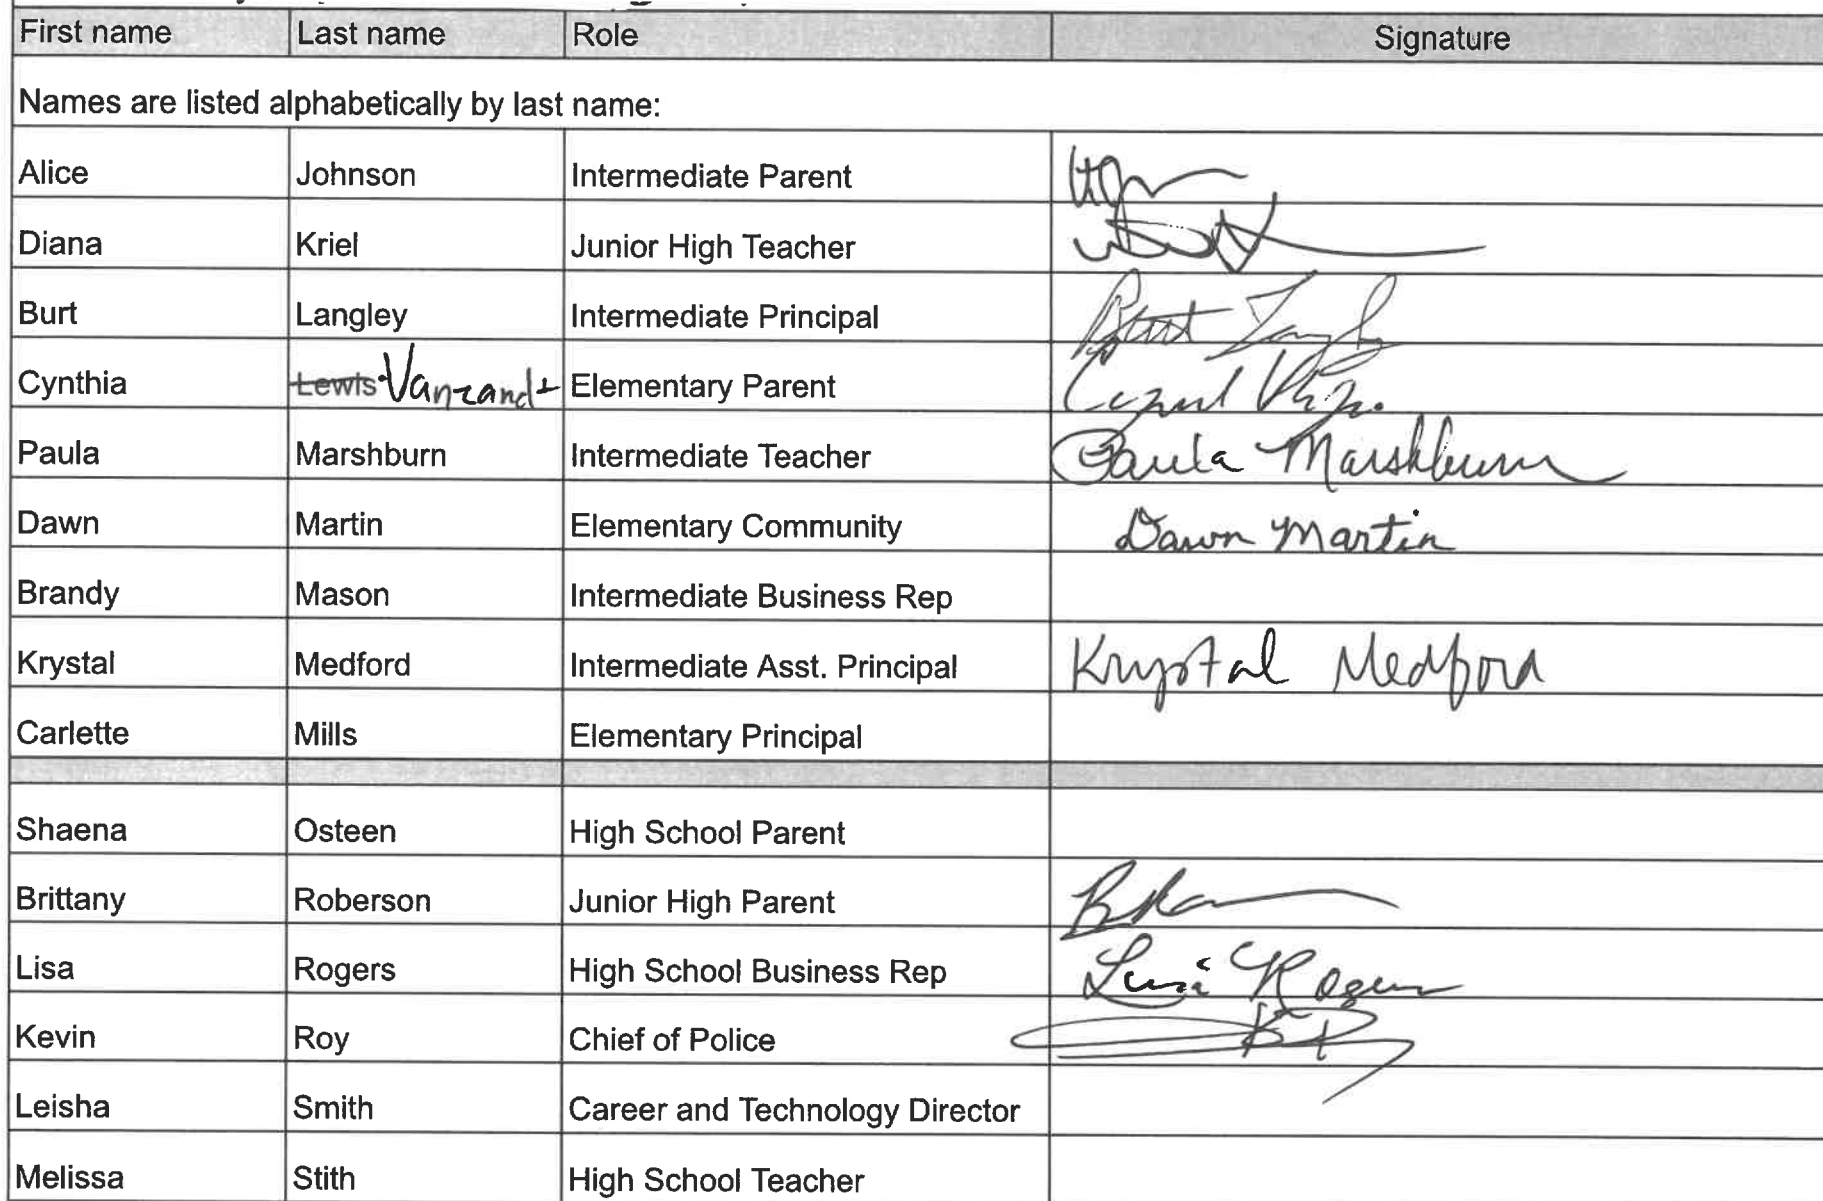 First name Last name Role Signature
Names are listed alphabetically by last name:
Alice Johnson Intermediate Parent
Diana Kriel Junior High Teacher
Burt Langley Intermediate Principal
Cynthia Lewis Vanzandt Elementary Parent
Paula Marshburn Intermediate Teacher Paula Marshburn
Dawn Martin Elementary Community Dawn Martin
Brandy Mason Intermediate Business Rep
Krystal Medford Intermediate Asst. Principal Krystal Medford
Carlette Mills Elementary Principal
Shaena Osteen High School Parent
Brittany Roberson Junior High Parent
Lisa Rogers High School Business Rep Lisa Rogers
Kevin Roy Chief of Police
Leisha Smith Career and Technology Director
Melissa Stith High School Teacher